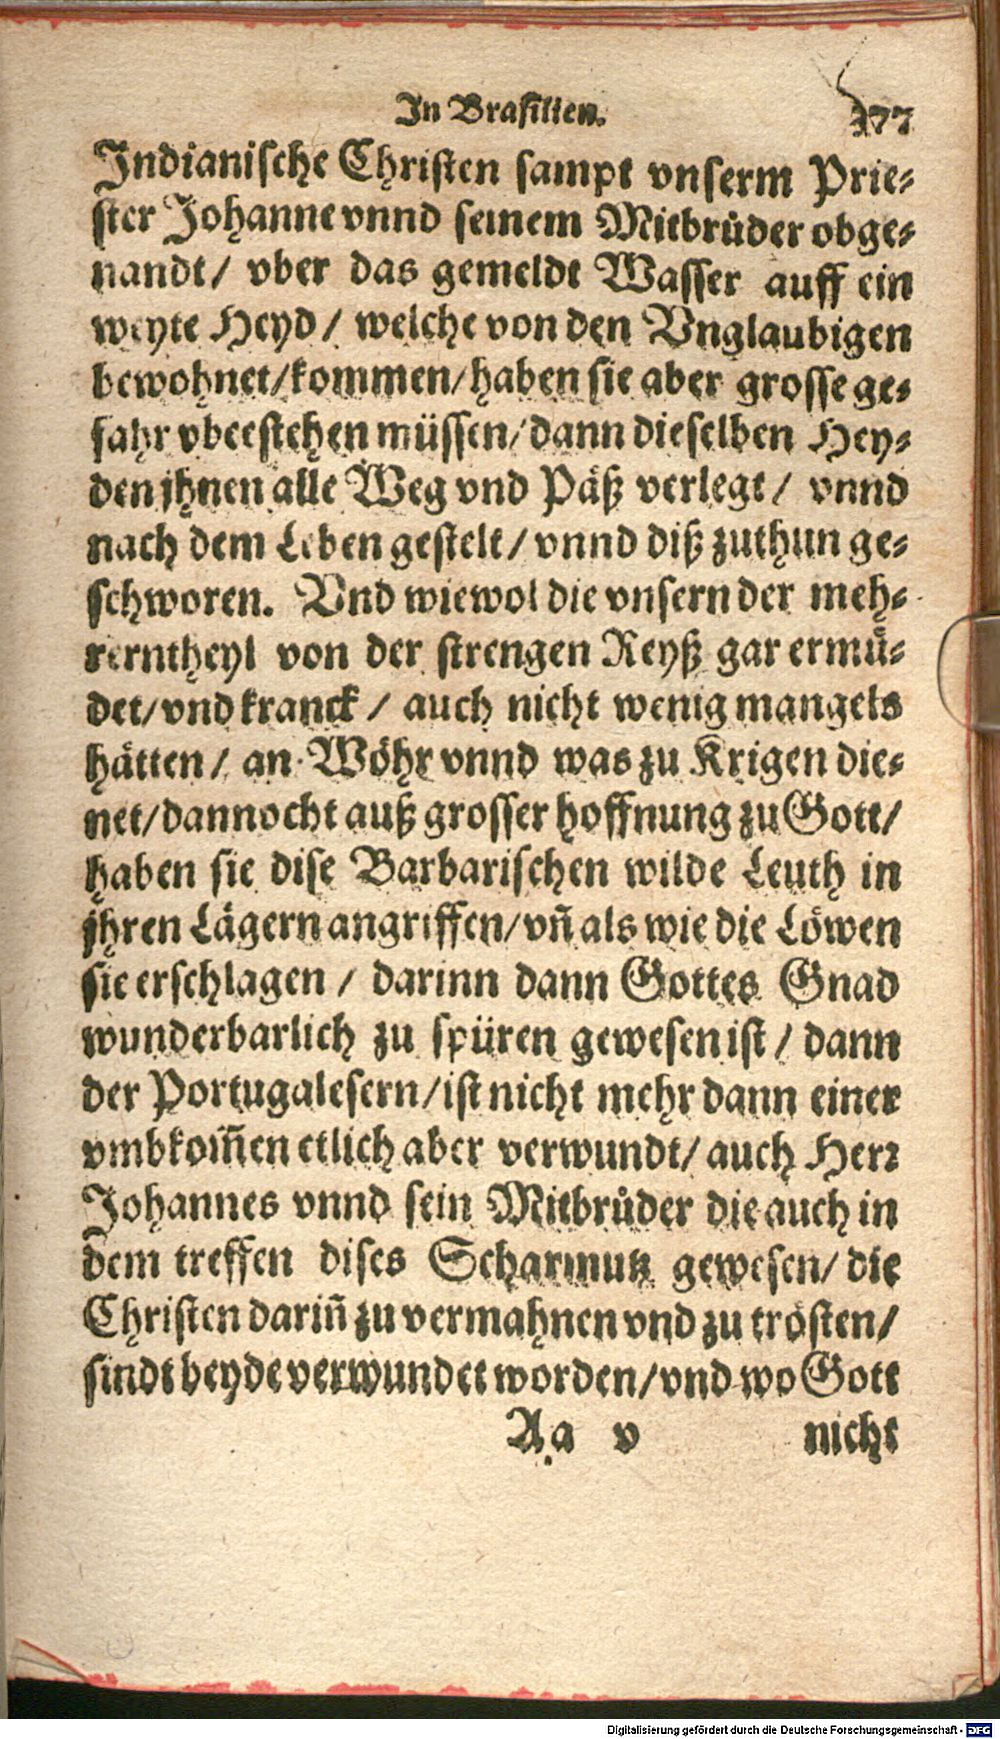 In Brasilien. 377
Indianische Christen sampt vnserm Prie-
ster Johanne vnnd seinem Mitbrůder obge-
nandt/ vber das gemeldt Wasser auff ein
weyte Heyd/ welche von den Vnglaubigen
bewohnet/kommen/haben sie aber grosse ge-
fahr vbeestehen müssen/dann dieselben Hey-
den jhnen alle Weg vnd Päß verlegt/ vnnd
nach dem Leben gestelt/vnnd diß zuthun ge-
schworen. Vnd wiewol die vnsern der meh-
rerntheyl von der strengen Reyß gar ermů-
det/vnd kranck/ auch nicht wenig mangels
hätten/ an Wöhr vnnd was zu Krigen die-
net/dannocht auß grosser hoffnung zu Gott/
haben sie dise Barbarischen wilde Leuth in
jhren Lägern angriffen/vñ als wie die Löwen
sie erschlagen/ darinn dann Gottes Gnad
wunderbarlich zu spüren gewesen ist/ dann
der Portugalesern/ist nicht mehr dann einer
vmbkom̃en etlich aber verwundt/ auch Herr
Johannes vnnd sein Mitbrůder die auch in
dem treffen dises Scharmutz gewesen/ die
Christen dariñ zu vermahnen vnd zu trösten/
sindt beyde verwundet worden/vnd wo Gott
Aa v nicht
Digitalisierung gefördert durch die Deutsche Forschungsgemeinschaft - DFG